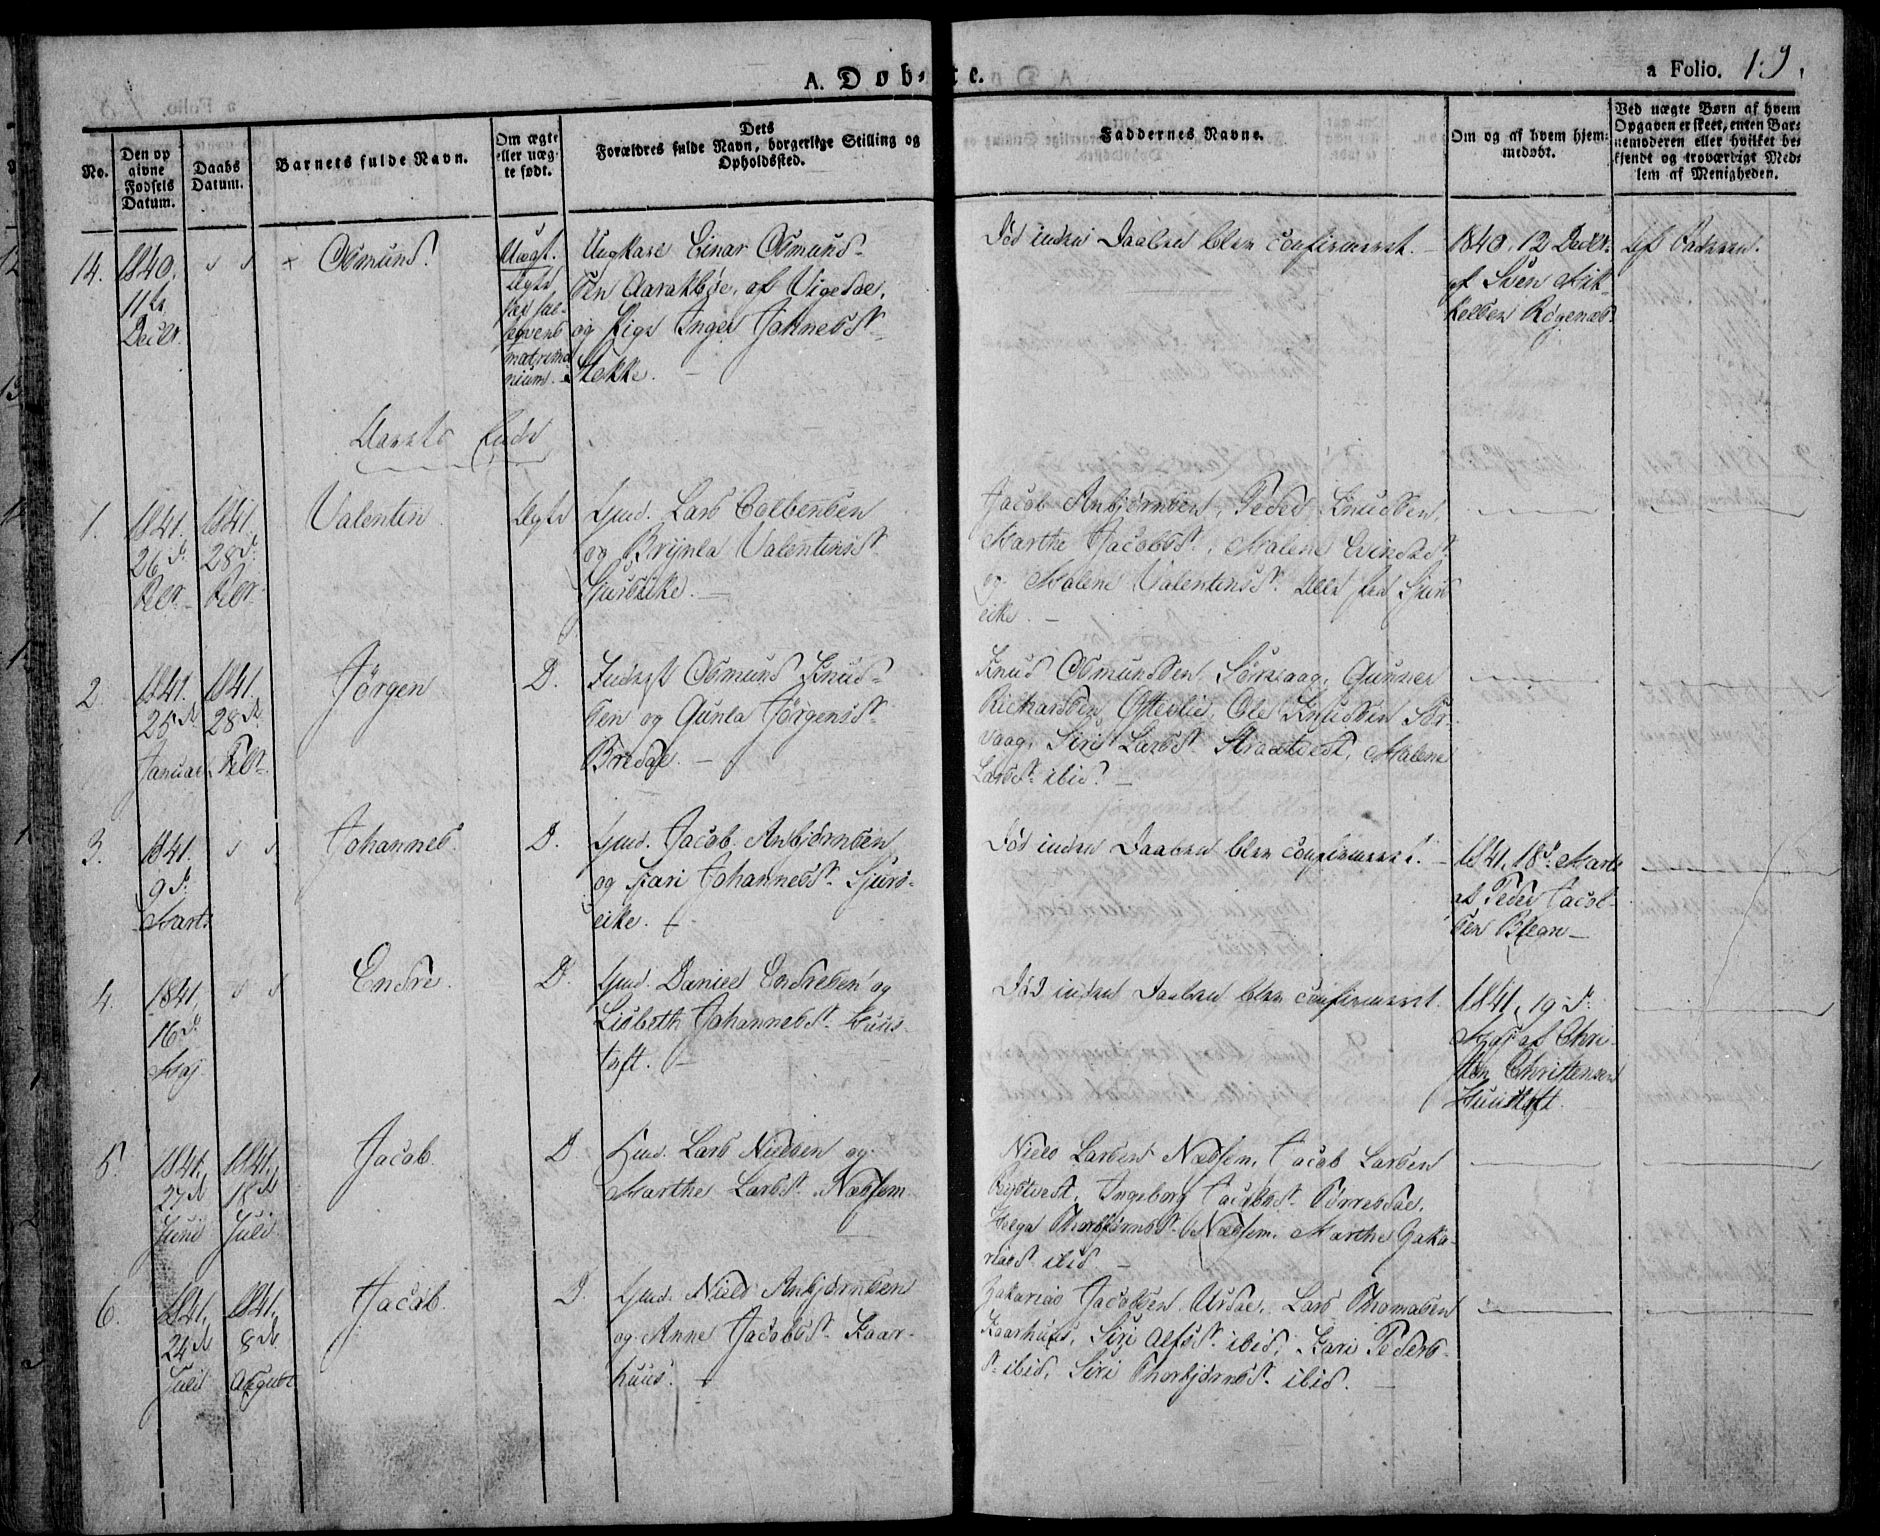 A. Døb-te.
a Folio. 19.
No.
Den op
givne
Fødsels
Datum.
Daabs
Datum.
Barnets fulde Navn.
Om ægte
eller uæg-
te født.
Dets
Forældres fulde Navn, borgerlige Stilling og
Opholdssted.
Faddernes Navne.
Om og af hvem hjem-
medøbt.
Ved uægte Børn af hvem
Opgaven er skeet, enten Bar-
nemoderen eller hvilket be-
kjendt og troværdigt Med-
lem af Menigheden.
14. 1840.
11te
Decbr.
Osmund.
Uægt.
Ægte
per
matrimo
nium.
Ungkarl Einar Osmund-
sen Aarakbøe, af Vigedal,
og Pige Inger Johnesdt
Stokke.
Død inden Daaben blev confirmeret.
1840. 12 Decbr.
af Sven Mik-
kelsen Røgenæs.
af Faderen.
Aarets Ende
1. 1841.
26de
Febr.
1841.
28de
Febr.
Valentin.
Ægte
Gmd. Lars Colbensen
og Brynla Valentinsdt
Sjurseike.
Jacob Anbjørnsen, Peder Knudsen,
Marthe Jacobsdt, Malene Evindsdt
og Malene Valentinsdt Alle fra Sjurs
eike.
2. 1841.
25de
Januar.
1841.
28de
Febr.
Jørgen
D.
Inderst Osmund Knud-
sen og Gunla Jørgensdt
Bredal.
Knud Osmundsen Sørvaag, Gunner
Richardsen Østerlie, Ole Knudsen Sør-
vaag, Siri Larsdt Straatveit, Malene
Larsdt ibid.
3. 1841.
9de
Marts
Johannes.
D.
Gmd. Jacob Anbjørnsen
og Kari Johannesdt Sjurs-
eike.
Død inden Daaben blev confirmeret.
1841. 18de Marts
af Peder Jacob-
sen
4. 1841.
16de
Maj
Endre.
D.
Gmd. Daniel Endresen og
Lisbeth Johannesdt Huus-
toft.
Død inden Daaben blev confirmeret.
1841, 19de
Maj af Chri-
sten Christensen
Huustoft.
5. 1841.
27de
Juni
1841.
18de
Juli
Jacob.
D
Gmd. Lars Nielsen og
Marthe Larsdt Næssem
Niels Larsen Næssem, Jacob Larsen
Ingeborg Jacobsdt Torresdal,
Helga Thorbjørnsdt Næssem, Marthe Zaka-
riasdt ibid.
6. 1841.
24de
Juli
1841.
8de
August
Jacob.
D.
Gmd. Niels Anbjørnsen
og Anne Jacobsdt Kaar-
huus.
Zakarias Jacobsen Ursdal, Lars Thomasen
Kaarhuus, Siri Alfsdt ibid, Kari Peders-
dt ibid, Siri Thorbjørnsdt ibid.